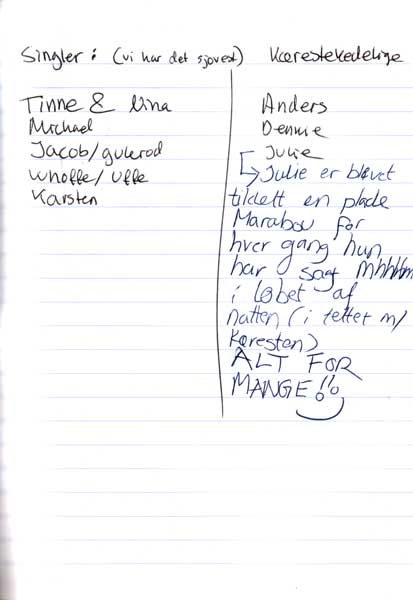 Singler: (vi har det sjovest)
Tinne & Nina
Michael
Jacob/gulerod
Whoffe/Uffe
Karsten
Kærestekedelige
Anders
Dennie
Julie
↳ Julie er blevet
tildelt en plade
Marabou for
hver gang hun
har sagt Mhhhhm
i løbet af
natten (i teltet m/
kæresten)
ALT FOR
MANGE!!